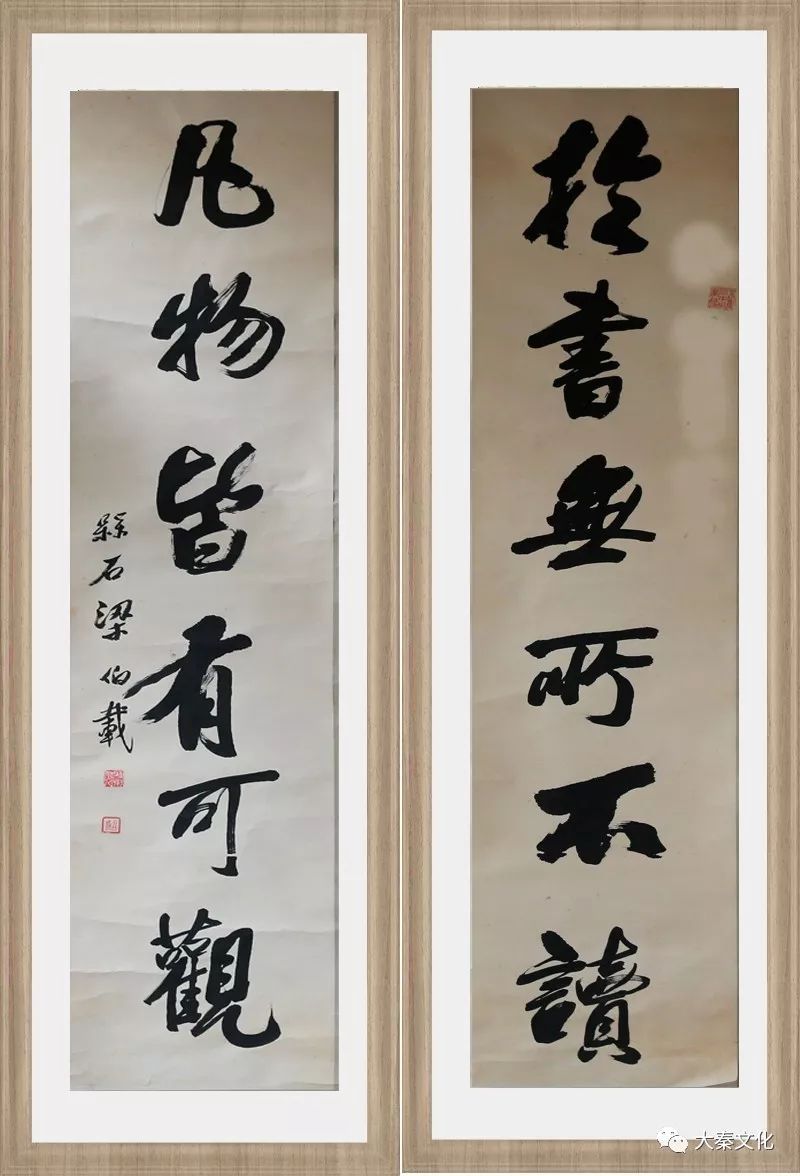 於書無所不讀
凡物皆有可觀
石梁伯載
大秦文化